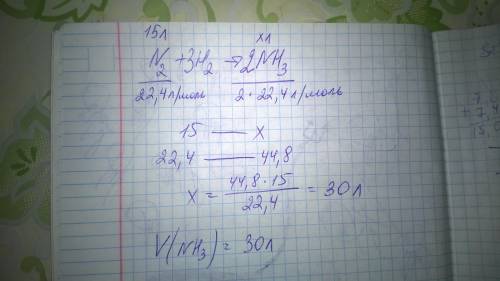 15л хл
N₂ + 3H₂ → 2NH₃
22,4 л/моль 2 · 22,4 л/моль
15 — х
22,4 — 44,8
х = 44,8 · 15 / 22,4 = 30л
V(NH₃) = 30л